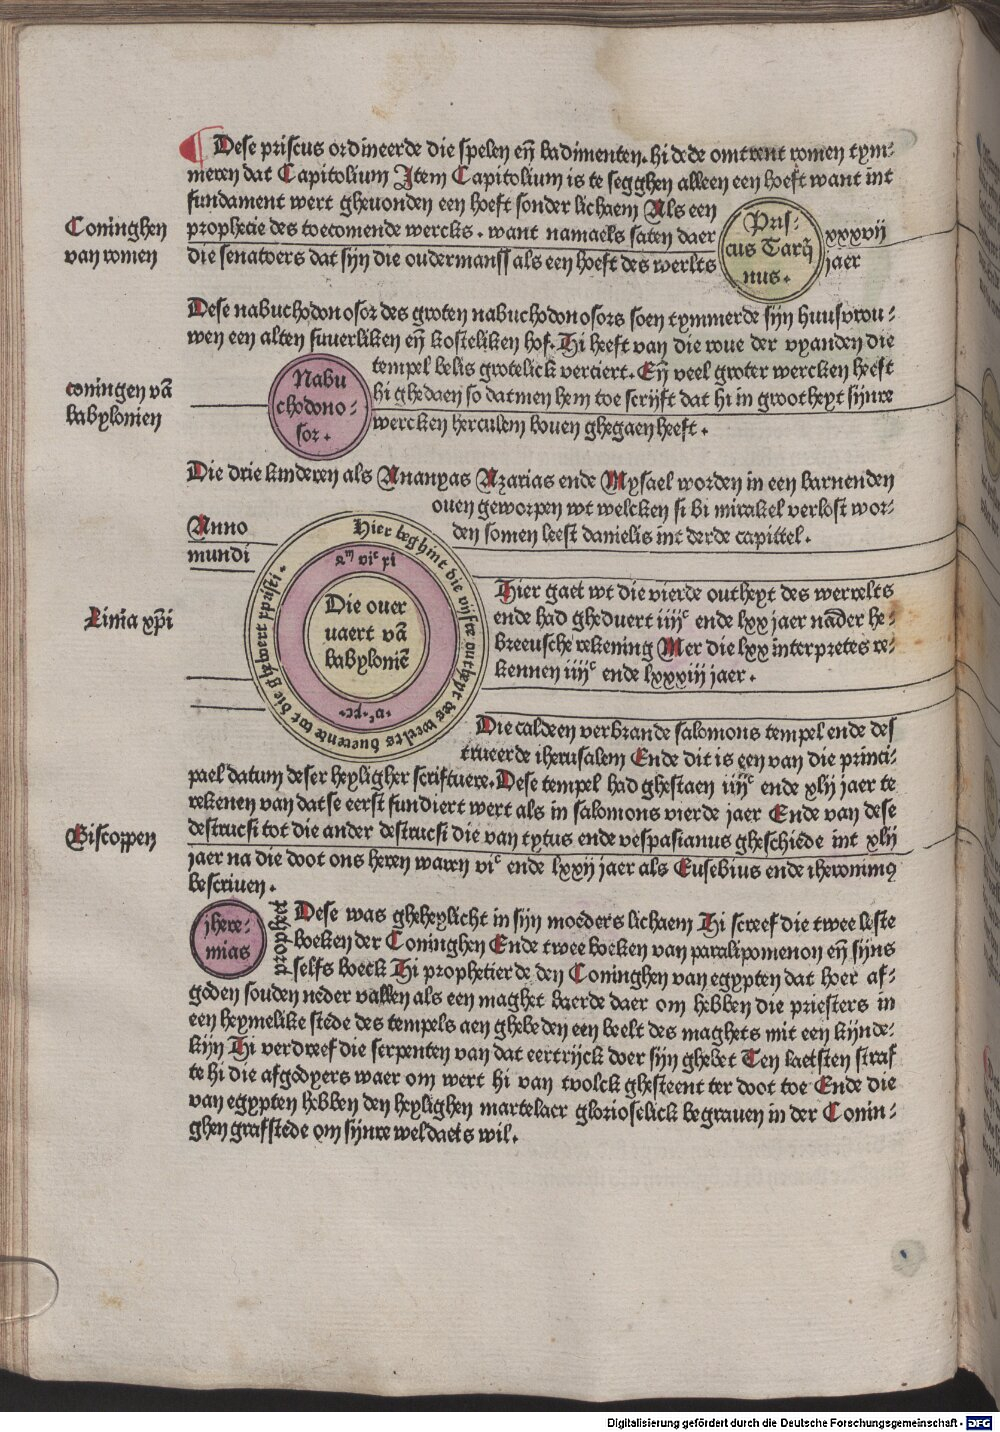 Dese priscus ordineerde die spelen eñ badimenten. hi dede omtrent romen tym⸗
meren dat Capitolium Item Capitolium is te segghen alleen een hoeft want int
fundament wert gheuonden een hoeft sonder lichaem Als een
prophetie des toecomende wercks. want namaels saten daer
die senatoers dat sijn die oudermanss als een hoeft des werlts
Coninghen
van romen
Pris⸗
cus Tarq̃
nus.
xxxvij
jaer
Dese nabuchodonosor des groten nabuchodonosors soen tymmerde sijn huusvrou⸗
wen een alten suuerliken eñ kosteliken hof. Hi heeft van die roue der vyanden die
tempel belis grotelick verciert. Eñ veel groter wercken heeft
hi ghedaen so datmen hem toe scrijft dat hi in grootheyt sijnre
wercken herculem bouen ghegaen heeft.
coningen vã
babylonien
Nabu
chodono⸗
sor.
Die drie kinderen als Ananyas Azarias ende Mysael worden in een barnenden
ouen geworpen wt welcken si bi mirakel verlost wor⸗
den somen leest danielis int derde capittel.
Anno
mundi
Linia xp̃i
Hier beghint die vijfte outheyt des werelts duerende tot die gheboert xp̃risti.
Die ouer
uaert vã
babyloniẽ
Hier gaet wt die vierde outheyt des werrelts
ende had gheduert iiijᶜ ende lxx jaer nãder he⸗
breeusche rekening Mer die lxx interpretes re⸗
kennen iiijᶜ ende lxxxiij jaer.
Die caldeen verbrande salomons tempel ende des
trueerde iherusalem Ende dit is een van die princi⸗
pael datum deser heyligher scriftuere. Dese tempel had ghestaen iiijᶜ ende xlij jaer te
rekenen van datse eerst fundiert wert als in salomons vierde jaer Ende van dese
destrucsi tot die ander destrucsi die van tytus ende vespasianus gheschiede int xlij
jaer na die doot ons heren waren viᶜ ende lxxij jaer als Eusebius ende iheronimꝯ
bescriuen.
Biscoppen
jhere⸗
mias
Dese was gheheylicht in sijn moeders lichaem Hi screef die twee leste
boeken der Coninghen Ende twee boeken van paralipomenon eñ sijns
selfs boeck Hi prophetierde den Coninghen van egypten dat hoer af⸗
goden souden neder vallen als een maghet baerde daer om hebben die priesters in
een heymelike stede des tempels aen ghebeden een beelt des maghets mit een kynde⸗
kijn Hi verdreef die serpenten van dat eertrijck doer sijn ghebet Ten laetsten straf
te hi die afgodyers waer om wert hi van tvolck ghesteent ter doot toe Ende die
van egypten hebben den heylighen martelaer glorioselick begrauen in der Conin⸗
ghen grafstede om sijnre weldaets wil.
Digitalisierung gefördert durch die Deutsche Forschungsgemeinschaft - DFG